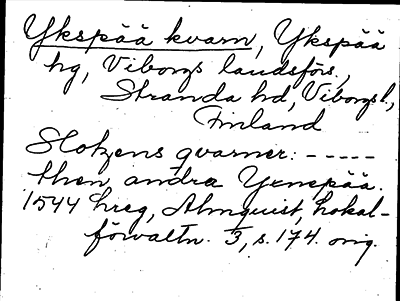 Ykspää kvarn, Ykspää
hg, Viborgs landsförs.,
Stranda hd, Viborgs l.,
Finland
Slotzens qvarner: - - - - -
then andra Yxnepää.
1544 hreg, Almquist, Lokal-
förvaltn. 3, s. 174. orig.